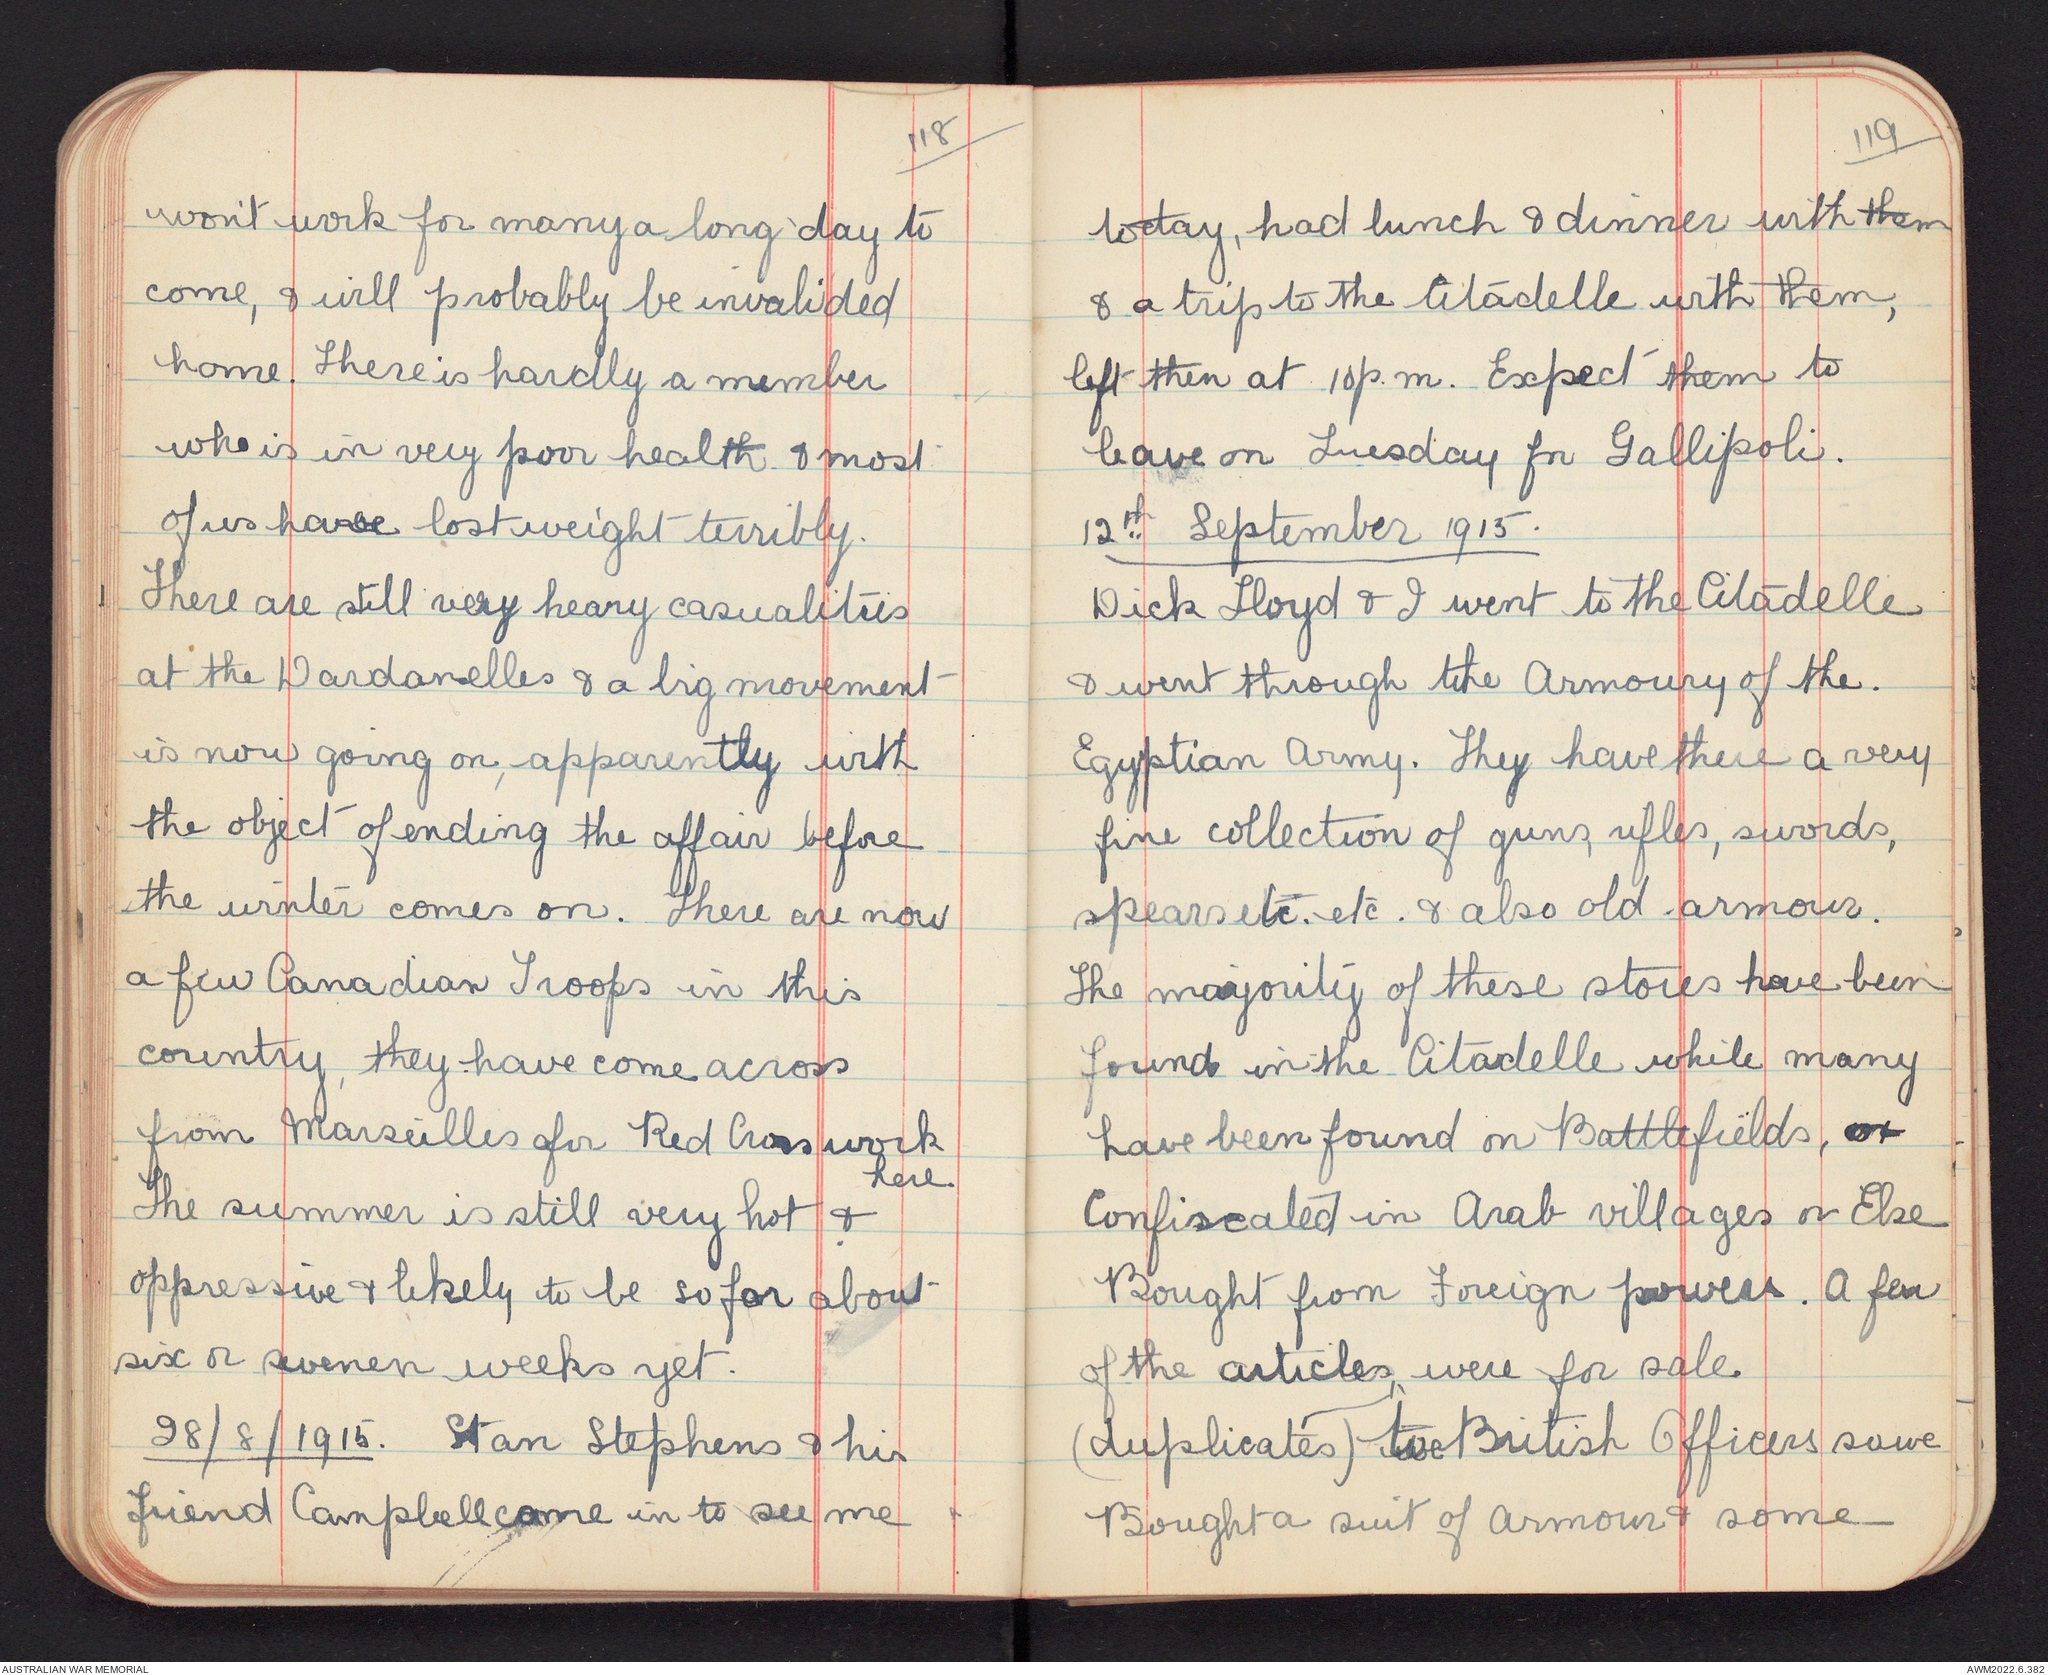 118
won't work for many a long day to
come, & will probably be invalided
home. There is hardly a member
who is in very poor health & most
of us have lost weight terribly.
There are still very heavy casualities
at the Dardanelles & a big movement
is now going on, apparently with
the object of ending the affair before
the winter comes on. There are now
a few Canadian Troops in this
country, they have come across
from Marseilles for Red Cross work
here.
The summer is still very hot &
oppressive & likely to be so for about
six or sevenen weeks yet.
28/8/1915. Stan Stephens & his
friend Campbell came in to see me
119
today, had lunch & dinner with them
& a trip to the Citadelle with them,
left then at 10 p.m. Expect them to
leave on Tuesday for Gallipoli.
12th September 1915.
Dick Lloyd & I went to the Citadelle
& went through the Armoury of the.
Egyptian Army. They have there a very
fine collection of guns, rifles, swords,
spears etc. etc. & also old armour.
The majority of these stores have been
found in the Citadelle while many
have been found on Battlefields, or
Confiscated in Arab villages or Else
Bought from Foreign powers. A few
of the articles, were for sale.
(duplicates) to British Officers so we
Bought a suit of Armour & some
AUSTRALIAN WAR MEMORIAL
AWM2022.6.382